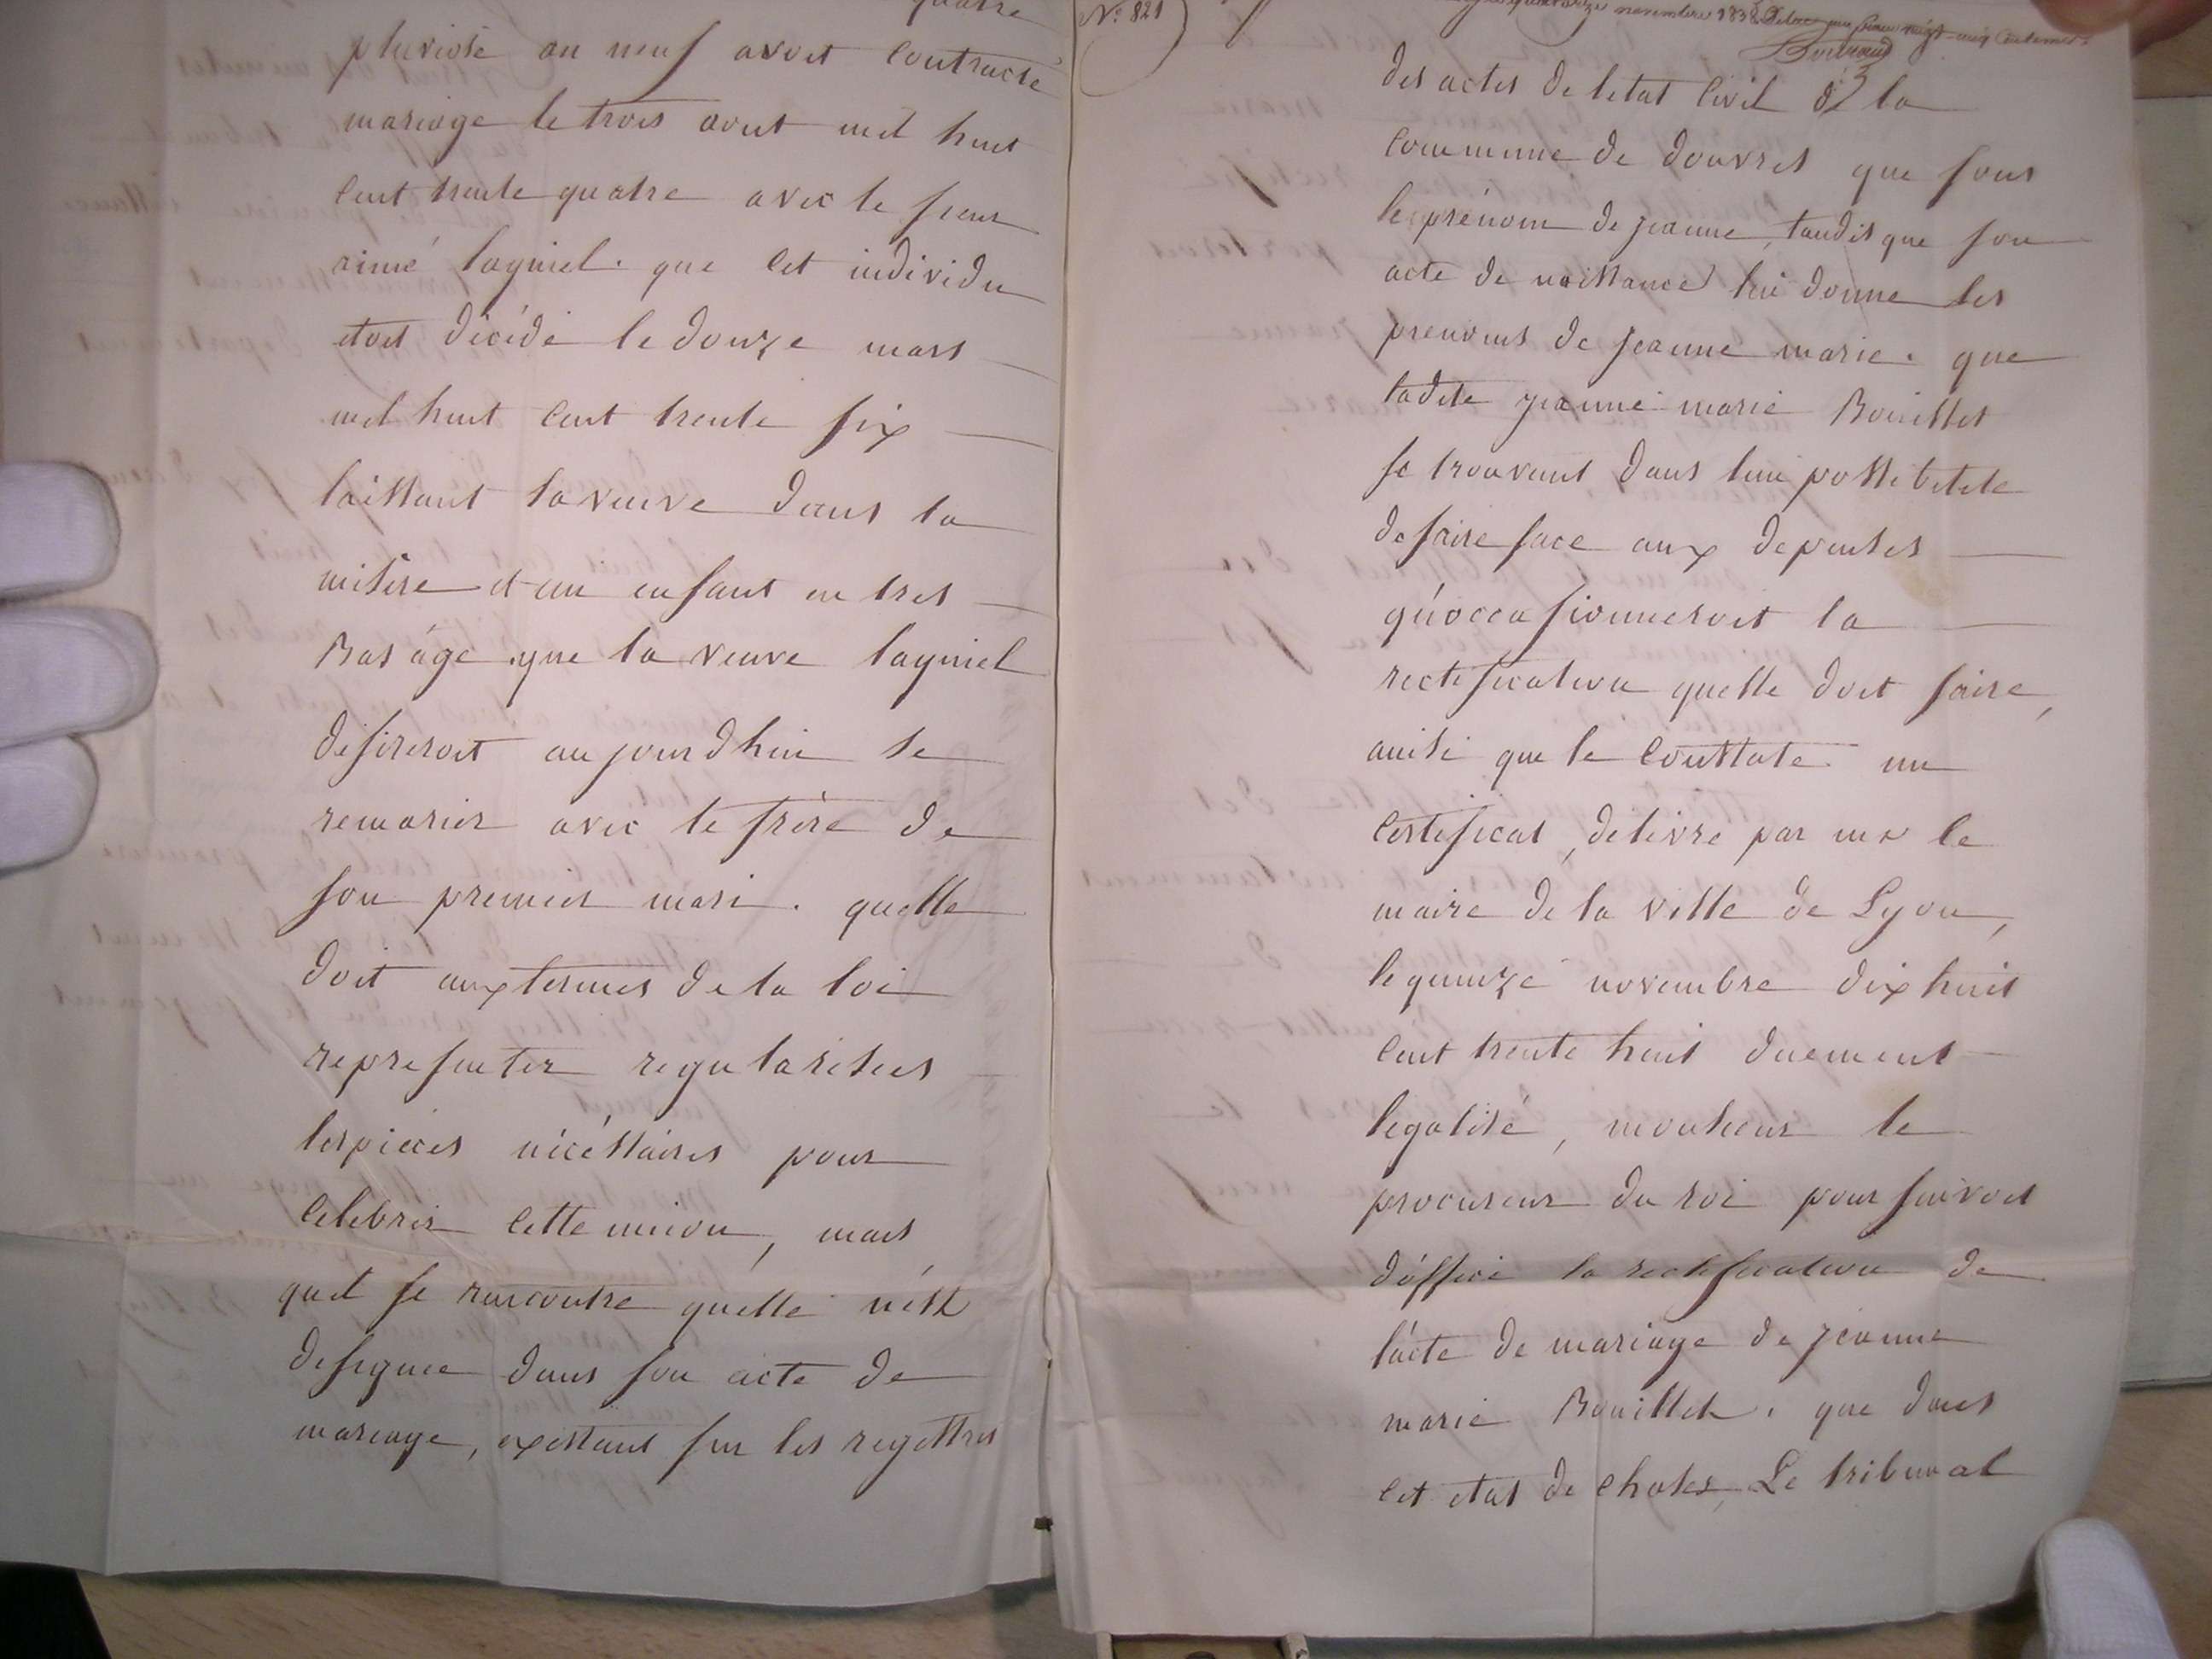 quatre
pluviose an neuf avoit contracté
mariage le trois aout mil huit
cent trente quatre avec le sieur
aimé lagniel. que cet individu
etoit décédé le douze mars
mil huit cent trente six
laissant sa veuve dans la
misère et un enfant en tres
Bas âge. que la veuve lagniel
desireroit aujourdhui se
remarier avec le frère de
son premier mari. quelle
doit aux termes de la loi
representer regularisees
les pièces nécéssaires pour
celebrer cette union, mais
quil se rencontre quélle n'ést
designee dans son acte de
mariage, existant sur les regîstres
N.º 821
novembre 1838
des actes de letat civil de la
commune de douvres que sous
le prénom de jeanne, tandis que son
acte de naissance lui donne les
prenoms de jeanne marie. que
ladite jeanne marie Bouillet
se trouvant dans limpossibilite
de faire face aux depenses
qu'occasionneroit la
rectification quelle doit faire,
ainsi que le constate un
certificat, delivre par mr le
maire de la ville de Lyon,
le quinze novembre dix huit
cent trente huit duement
legalisé, monsieur le
procureur du roi poursuivoit
d'óffice la rectification de
l'ácte de mariage de jeanne
marie Bouillet. que dans
cet etat de choses, Le tribunal